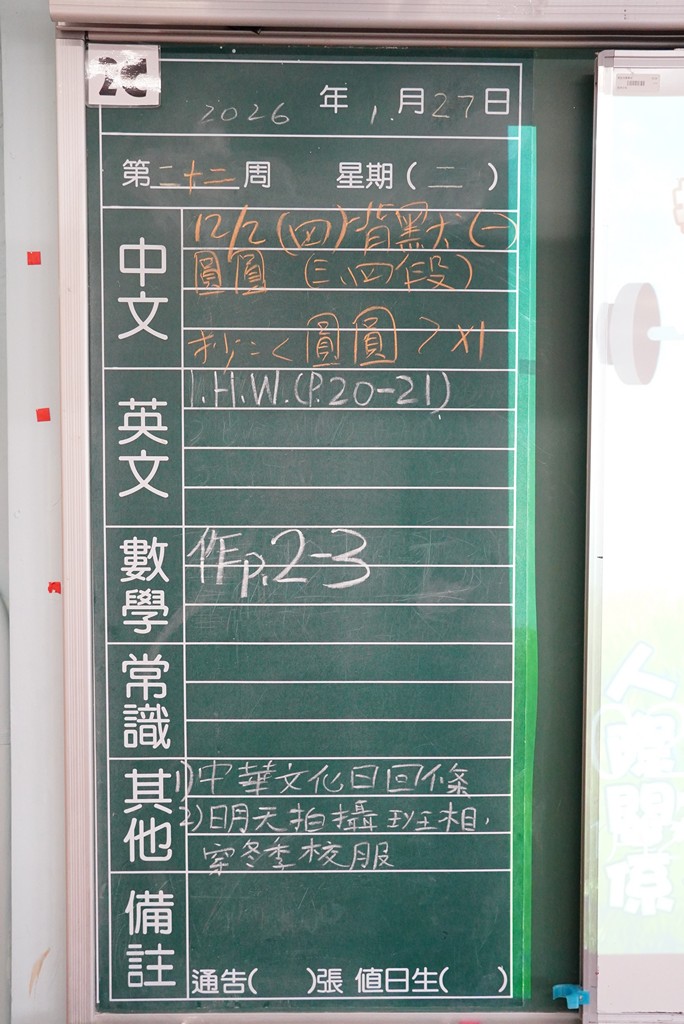 2C
2026 年 1月27日
第二十二周 星期(二)
中文
12/2(四)背默(一)
圓圓 (三、四段)
抄:<圓圓>x1
英文
1.H.W.(P.20-21)
數學
作p.2-3
常識
其他
1)中華文化日回條
2)明天拍攝班相,
穿冬季校服
備註
通告( )張 值日生( )
人際關係